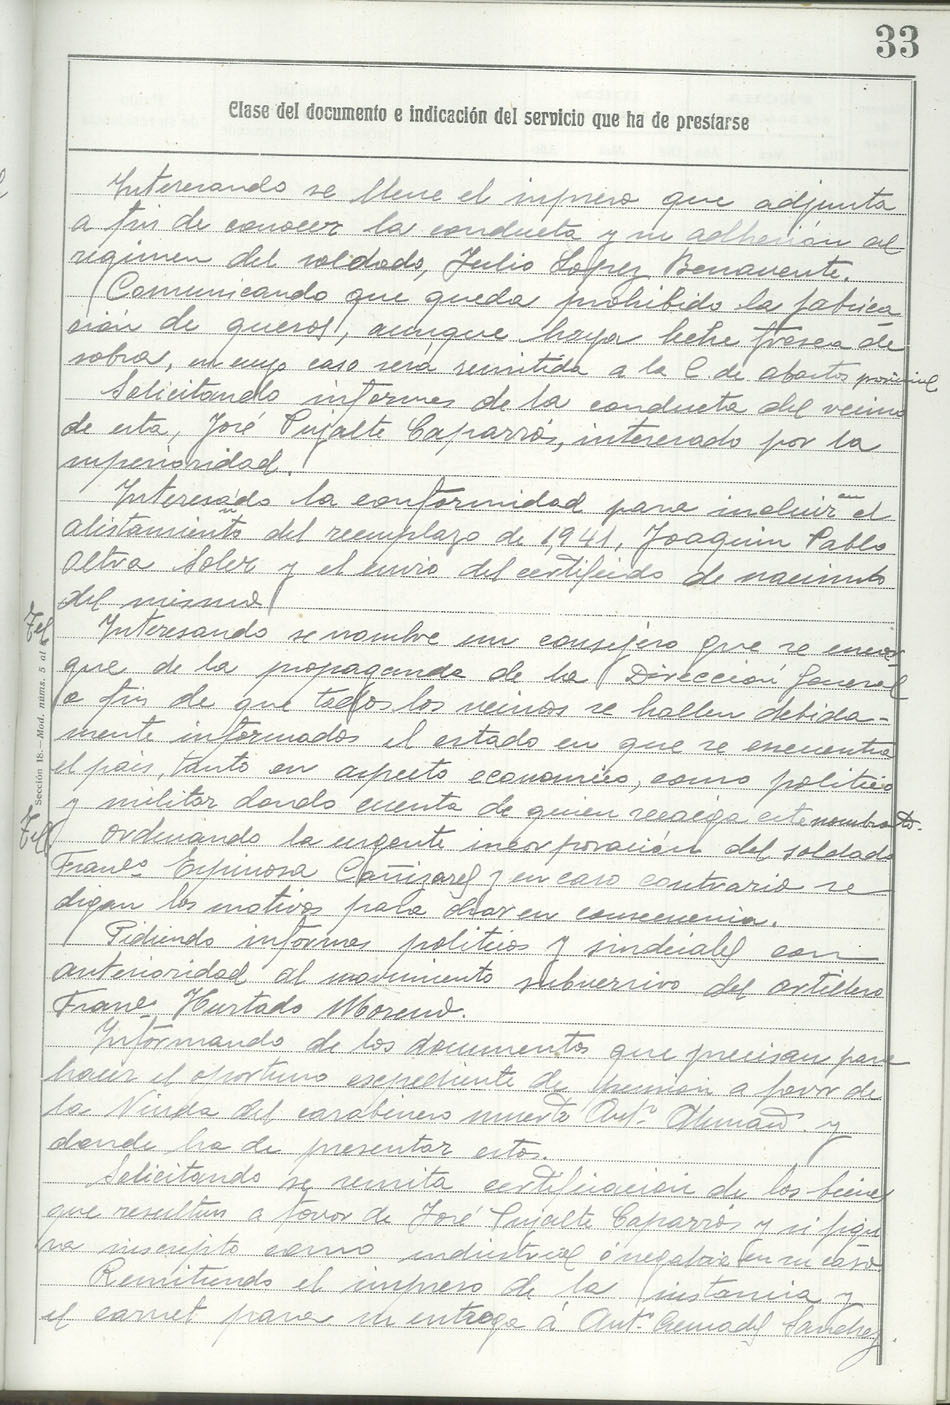 33
Clase del documento e indicación del servicio que ha de prestarse
Interesando se llene el impreso que adjunta
a fin de conocer la conducta y su adhesión al
regimen del soldado, Julio López Benavente.
Comunicando que queda prohibido la fabrica
ción de quesos, aunque haya leche fresca de
sobra, en cuyo caso será remitida a la C. de abastos provincial
Solicitando informes de la conducta del vecino
de esta, José Pujalte Caparrós, interesado por la
superioridad.
Interesado la conformidad para incluir en el
alistamiento del reemplazo de 1,941, Joaquin Pablo
Soler y el envio del certificado de nacimto
del mismo
Interesando se nombre un consejero que se encar
gue de la propaganda de la Dirección General
a fin de que todos los vecinos se hallen debida-
mente informados el estado en que se encuentra
el pais, tanto en aspecto economico, como politico
y militar dando cuenta de quien recaiga este nombramto.
Ordenando la urgente incorporación del soldado
Franco Espinosa Cañizares y en caso contrario se
digan los motivos para obrar en consecuencia.
Pidiendo informes politicos y sindicales con
anterioridad al movimiento subversivo del artillero
Franco Hurtado Moreno.
Informando de los documentos que precisan para
hacer el oportuno expediente de pensión a favor de
la Viuda del carabinero muerto Anto y
donde ha de presentar estos.
Solicitando se remita certificación de los bienes
que resulten a favor de José Pujalte Caparrós y si figu
ra inscripto como industrial ó negativa en su caso
Remitiendo el impreso de la instancia y
el carnet para su entrega á Anto Sanchez.
Sección 18.—Mod. núms. 5 al